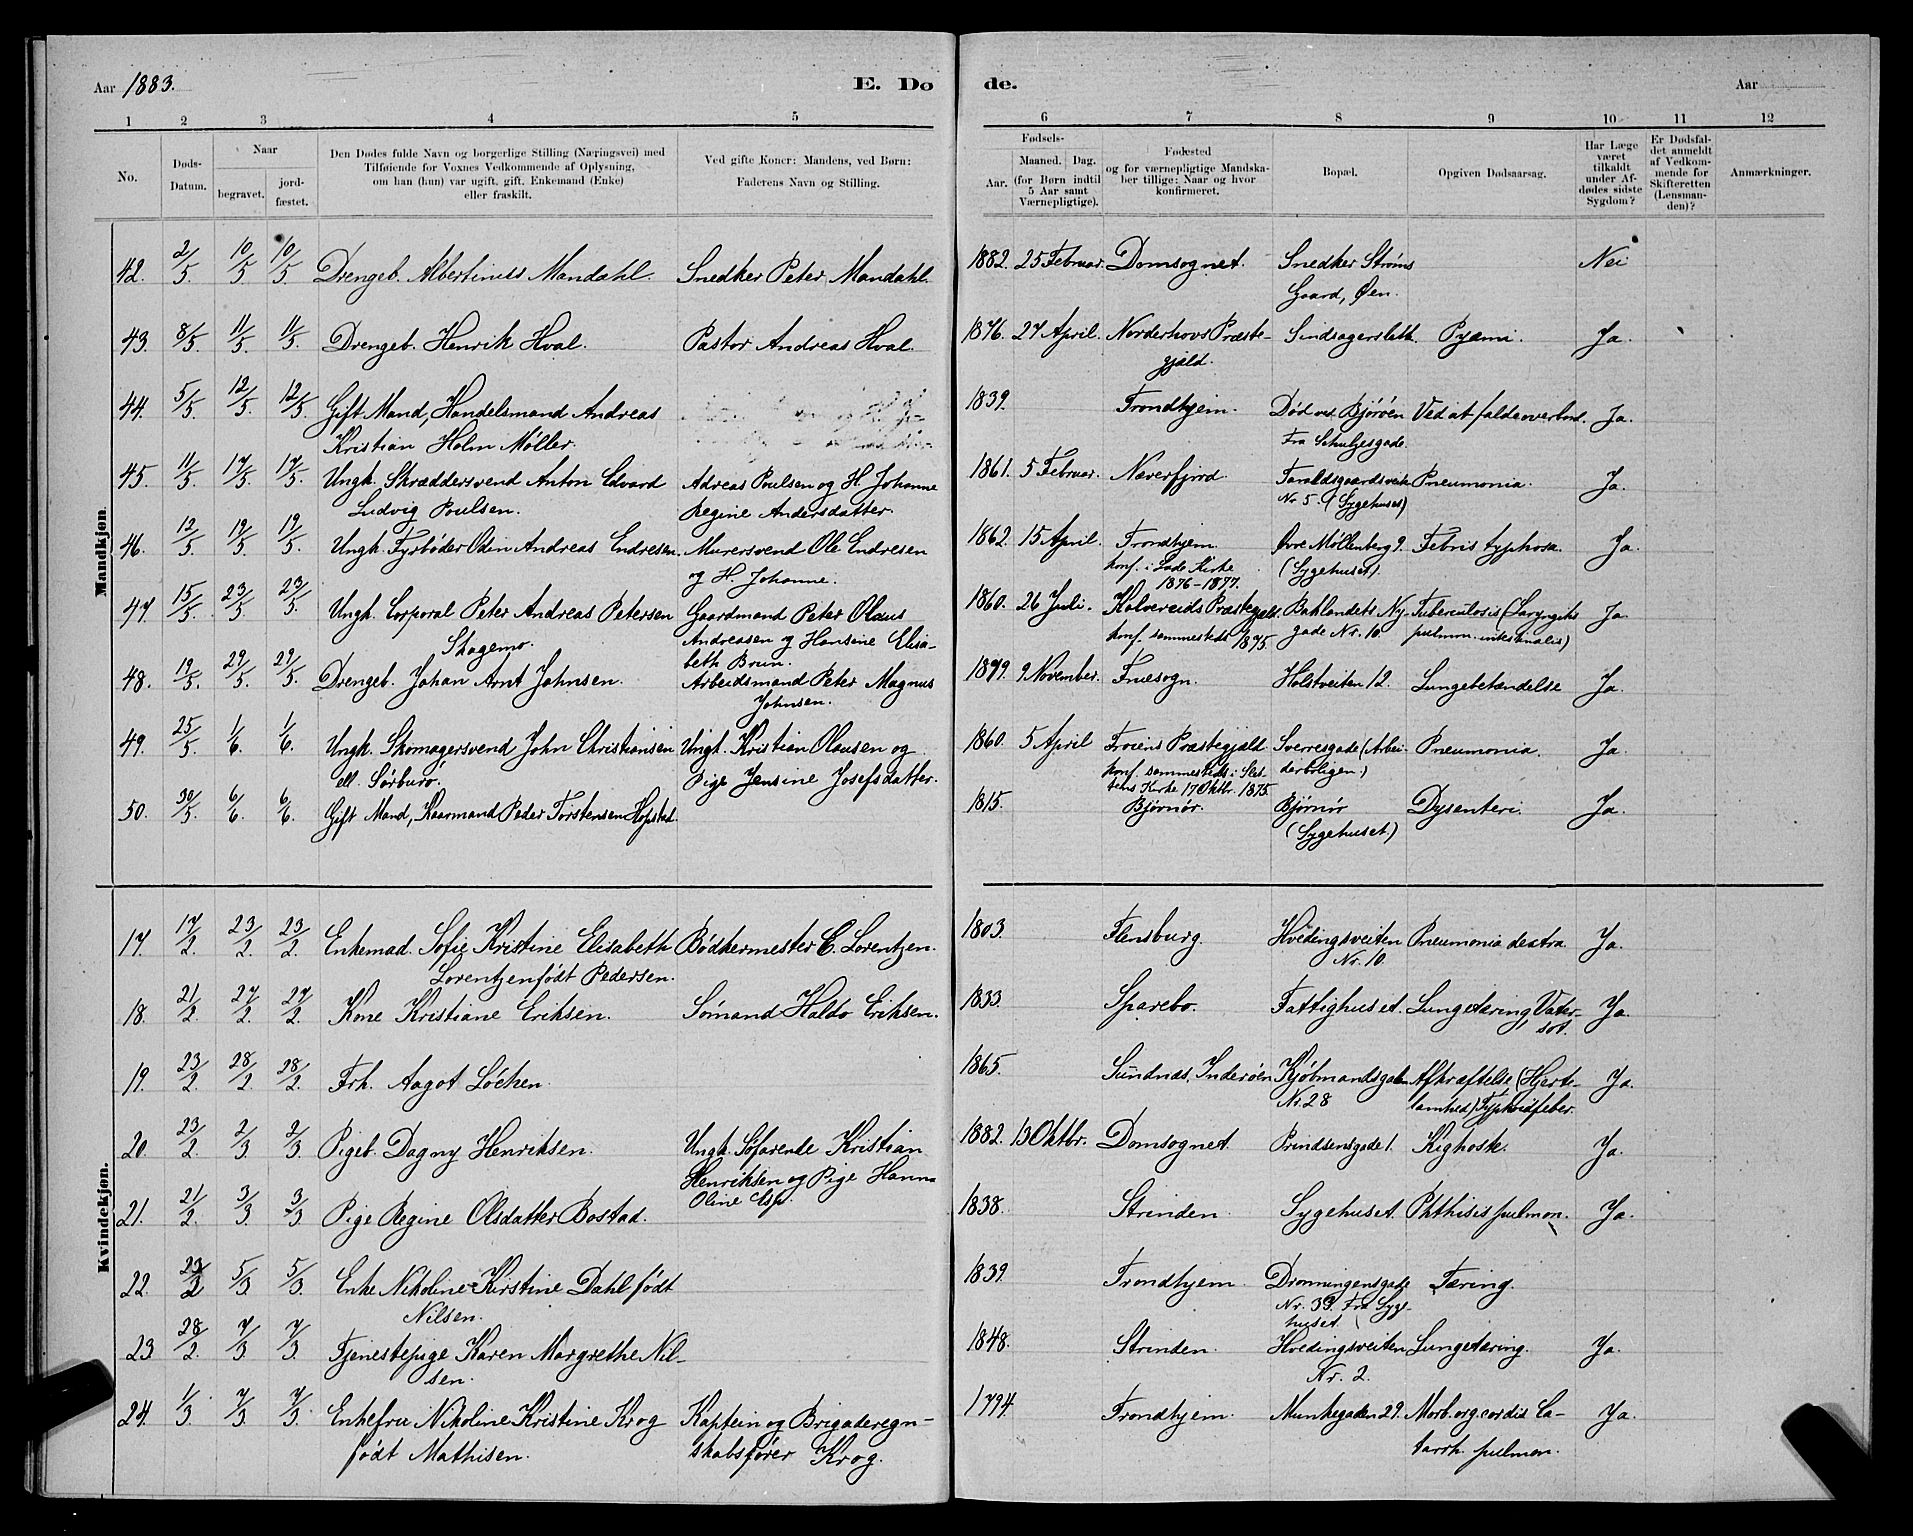 Aar 1883.
E. Dø
de.
Aar
1 2 3 4 5 6 7 8 9 10 11 12
No.
Døds-Datum.
Naar
begravet.
jord-fæstet.
Den Dødes fulde Navn og borgerlige Stilling (Næringsvei) med
Tilføiende for Voxnes Vedkommende af Oplysning,
om han (hun) var ugift, gift, Enkemand (Enke)
eller fraskilt.
Ved gifte Koner: Mandens, ved Børn:
Faderens Navn og Stilling.
Fødsels-
Aar.
Maaned. Dag.
(for Børn indtil
5 Aar samt
Værnepligtige).
Fødested
og for værnepligtige Mandska-
ber tillige: Naar og hvor
konfirmeret.
Bopæl.
Opgiven Dødsaarsag.
Har Læge
været
tilkaldt
under Af-
dødes sidste
Sygdom?
Er Dødsfal-
det anmeldt
af Vedkom-
mende for
Skifteretten
(Lensman-
den)?
Anmærkninger.
Mandkjøn.
42. 2/5. 10/5 10/5 Drengeb. Albertinius Mandahl. Snedker Peter Mandahl. 1882. 25 Februar. Domsognet. Snedker Strøms Nei
Gaard, Øen.
43. 8/5. 11/5. 11/5. Drengeb. Henrik Hval. Pastor Andreas Hval. 1876. 27 April. Norderhovs Præste- Sindsagerslett. Pyæmi. Ja.
gjæld.
44. 5/5 12/5. 12/5. Gift Mand, Handelsmand Andreas 1839. Trondhjem. Død ved Bjørøen Ved at falde overbord. Ja.
Kristian Holm Møller. Fra Schultzesgade.
45. 11/5. 17/5. 17/5. Ungk. Skræddersvend Anton Edvard Adreas Poulsen og H. Johanne 1861. 5 Februar. Naverfjord. Taraldsgaardsveit Pneumonia. Ja.
Ludvig Poulsen. Regine Andersdatter. Nr. 5. (Sygehuset)
46. 12/5. 19/5. 19/5. Ungk. Fyrbøder Odin Andreas Endresen. Murersvend Ole Endresen 1862. 15 April. Trondhjem. Øvre Møllenberg 9. Febris typhosa. Ja.
og H. Johanne. konf. i Lade Kirke (Sygehuset).
1876-1877.
47. 15/5. 23/5. 23/5. Ungk. Corporal Peter Andreas Petersen Gaardmand Peter Olaus 1860. 26 Juli. Kolvereids Præstegjæld. Baklandets Ny Tuberculosis (Laryngitis Ja.
Skagemo. Andreasen og Hansine Elisa- konf. sammesteds 1875. gade Nr. 10. pulmon. intestinalis)
beth Brun.
48. 19/5. 29/5. 29/5. Drengeb. Johan Arnt Johnsen. Arbeidsmand Peter Magnus 1879. 9 November. Fruesogn. Holstveiten 12. Lungebetændelse Ja.
Johnsen.
49. 25/5. 1/6. 1/6. Ungk. Skomagersvend John Christiansen Ungk. Kristian Olausen og 1860. 5 April Froiens Præstegjæld Sverresgade (Arbei- Pneumonia. Ja.
ell. Sørburø. Pige Jensine Josefsdatter. konf. sammesteds i Slet- derboligen.)
tens Kirke 17 Oktbr. 1875.
50. 30/5. 6/6. 6/6. Gift Mand, Kaarmand Peder Torstensen Hopstad 1815. Bjørnør. Bjørnør Dysenteri. Ja.
(Sygehuset.)
Kvindekjøn.
17. 17/2. 23/2. 23/2. Enkemad. Sofie Kristine Elisabeth Bødkermester C. Lorentzen. 1803. Flensburg. Hvedingsveiten Pneumonia dextra. Ja.
Lorentzen født Pedersen. Nr. 10.
18. 21/2. 27/2. 27/2. Kone Kristiane Eriksen. Sømand Haldo Eriksen. 1833. Sparebo. Fattighuset. Lungetæring, Vater- Ja.
sot.
19. 23/2. 28/2. 28/2. Frk. Aagot Løchen. 1865. Sundnæs, Inderøen Kjøbmandsgaden Afkræftelse (Hjerte- Ja.
Nr. 28 lamhed) Typhoidfeber.
20. 23/2. 2/3 2/3 Pigeb. Dagny Henriksen. Ungk. Søfarende Kristian 1882. 13 Oktbr. Domsognet. Prindsensgade 1. Kighoste. Ja.
Henriksen og Pige Hanna
Oline Asp.
21. 21/2. 3/3. 3/3 Pige Regine Olsdatter Bostad. 1838. Strinden. Sygehuset. Phthisis pulmon. Ja.
22. 23/2 5/3. 5/3. Enke Nikoline Kirstine Dahl født 1839. Trondhjem. Dronningensgade Tæring.
Nilsen. Nr. 39. Fra Syge-
huset.
23 28/2. 7/3 7/3. Tjenestepige Karen Margrethe Nil- 1848. Strinden. Hvedingsveiten Lungetæring. Ja.
sen. Nr. 2.
24. 1/3 7/3 7/3. Enkefru Nikoline Kristine Krog Kaptein og Brigaderegn- 1794. Trondhjem. Munkegaden 29. Morb. org. cordis Ca- Ja.
født Mathisen. skabsfører Krog. tarrh. pulmon.